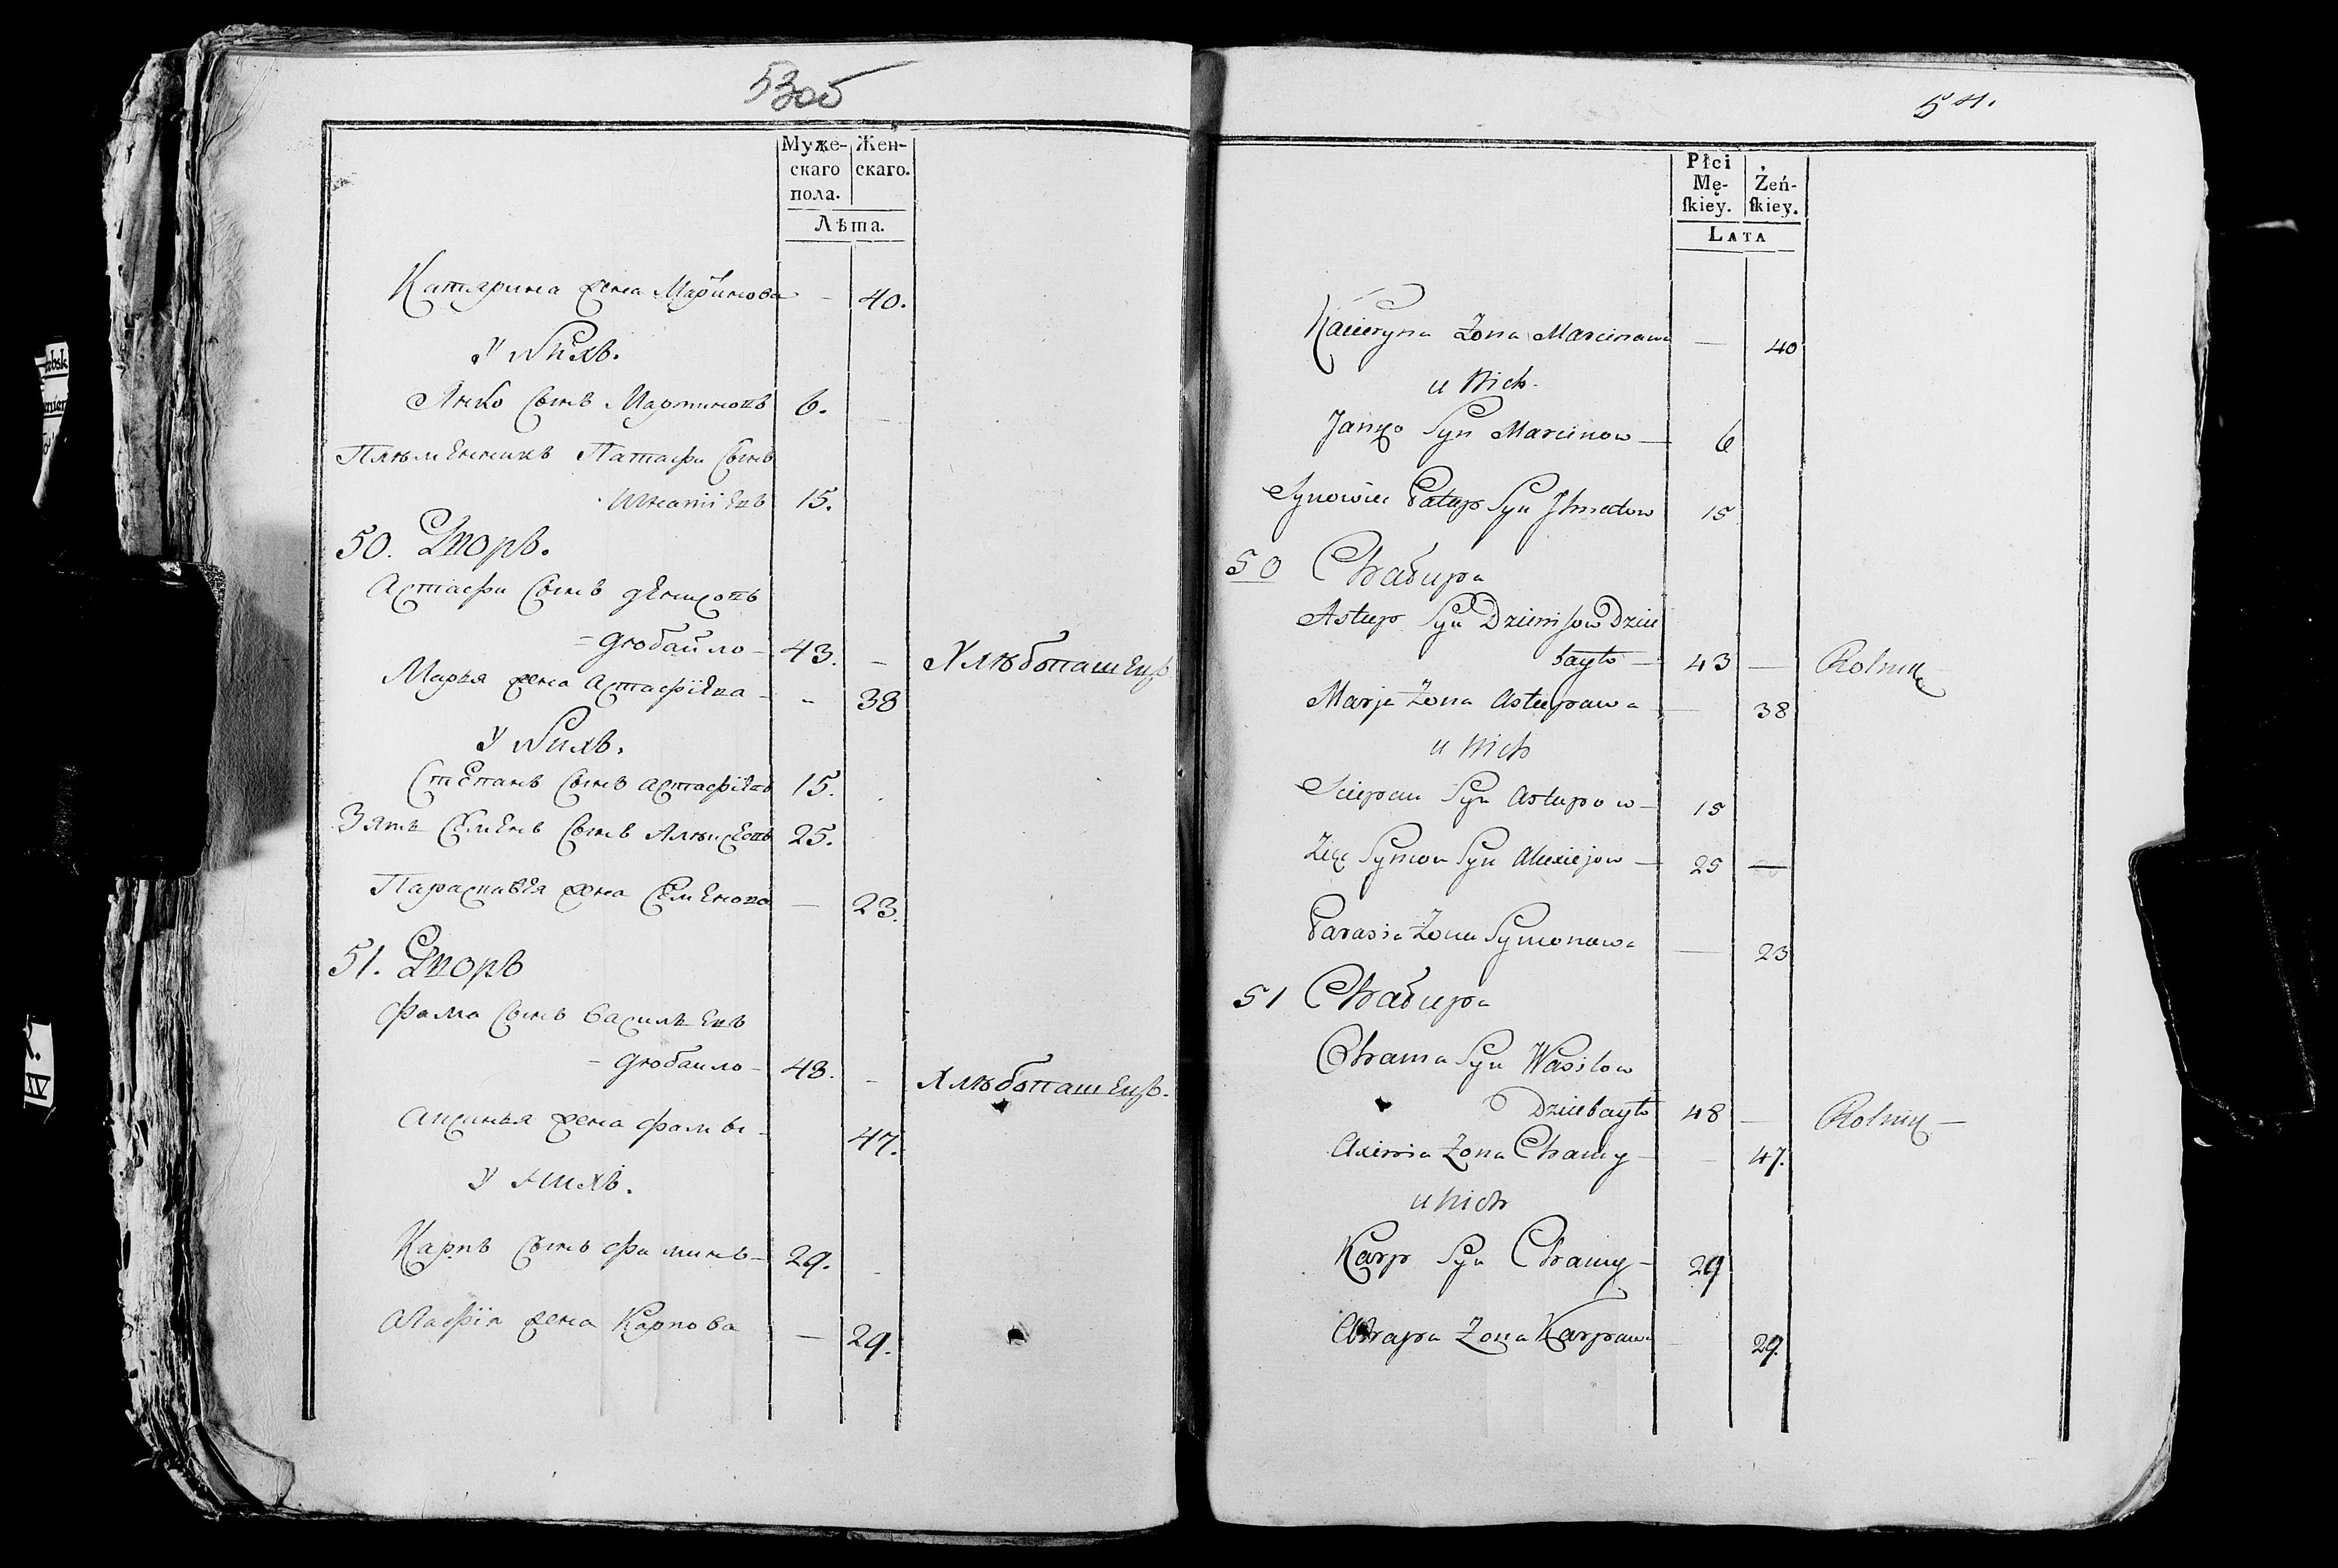 53об
Муже-
скаго
пола.
Жен-
скаго.
Лѣта.
Катярина жена Марцинова - 40.
У Нихъ.
Янко Сынъ Мартиновъ 6. -
Племенникъ Патапи Сынъ
Игнатіевъ 15.
50. Дворъ.
Астафи Сынъ Денисовъ
= дюбайло - 43. - Хлѣбопашецъ
Марья жена Астафіева - - 38
У Нихъ.
Степанъ Сынъ Астафіевъ 15.
Зять Семенъ Сынъ Алѣксеевъ 25.
Параскавея жена Семенова - 23.
51. Дворъ
Фама Сынъ Васильевъ
= дюбаило - 48. - Хлѣбопашецъ.
Аксинья жена Фамы - 47.
У нихъ.
Карпъ Сынъ Фаминъ - 29. -
Агафія жена Карпова - 29.
54.
Płci
Mę-
ſkiey.
Żeń-
ſkiey.
LATA
Kacieryna Zona Marcinawa - 40
u Nich.
Janko Syn Marcinow - 6
Synowiec Patap Syn Ihnatow 15
50 Chaŧupa
Astap Syn Dzienisow Dziu
bayło - 43 - Rolnik
Marja Zona Astapawa - 38
u Nich
Sciepan Syn Astapow - 15
Zięć Symon Syn Alexiejow - 25 -
Parasia Zona Symonawa - 23
51 Chałupa
Chama Syn Wasilow
Dziubayło 48 - Rolnik -
Axinia Zona Chamy - - 47.
u Nich
Karp Syn Chamy - 29
Ahapa Zona Karpawa - 29.